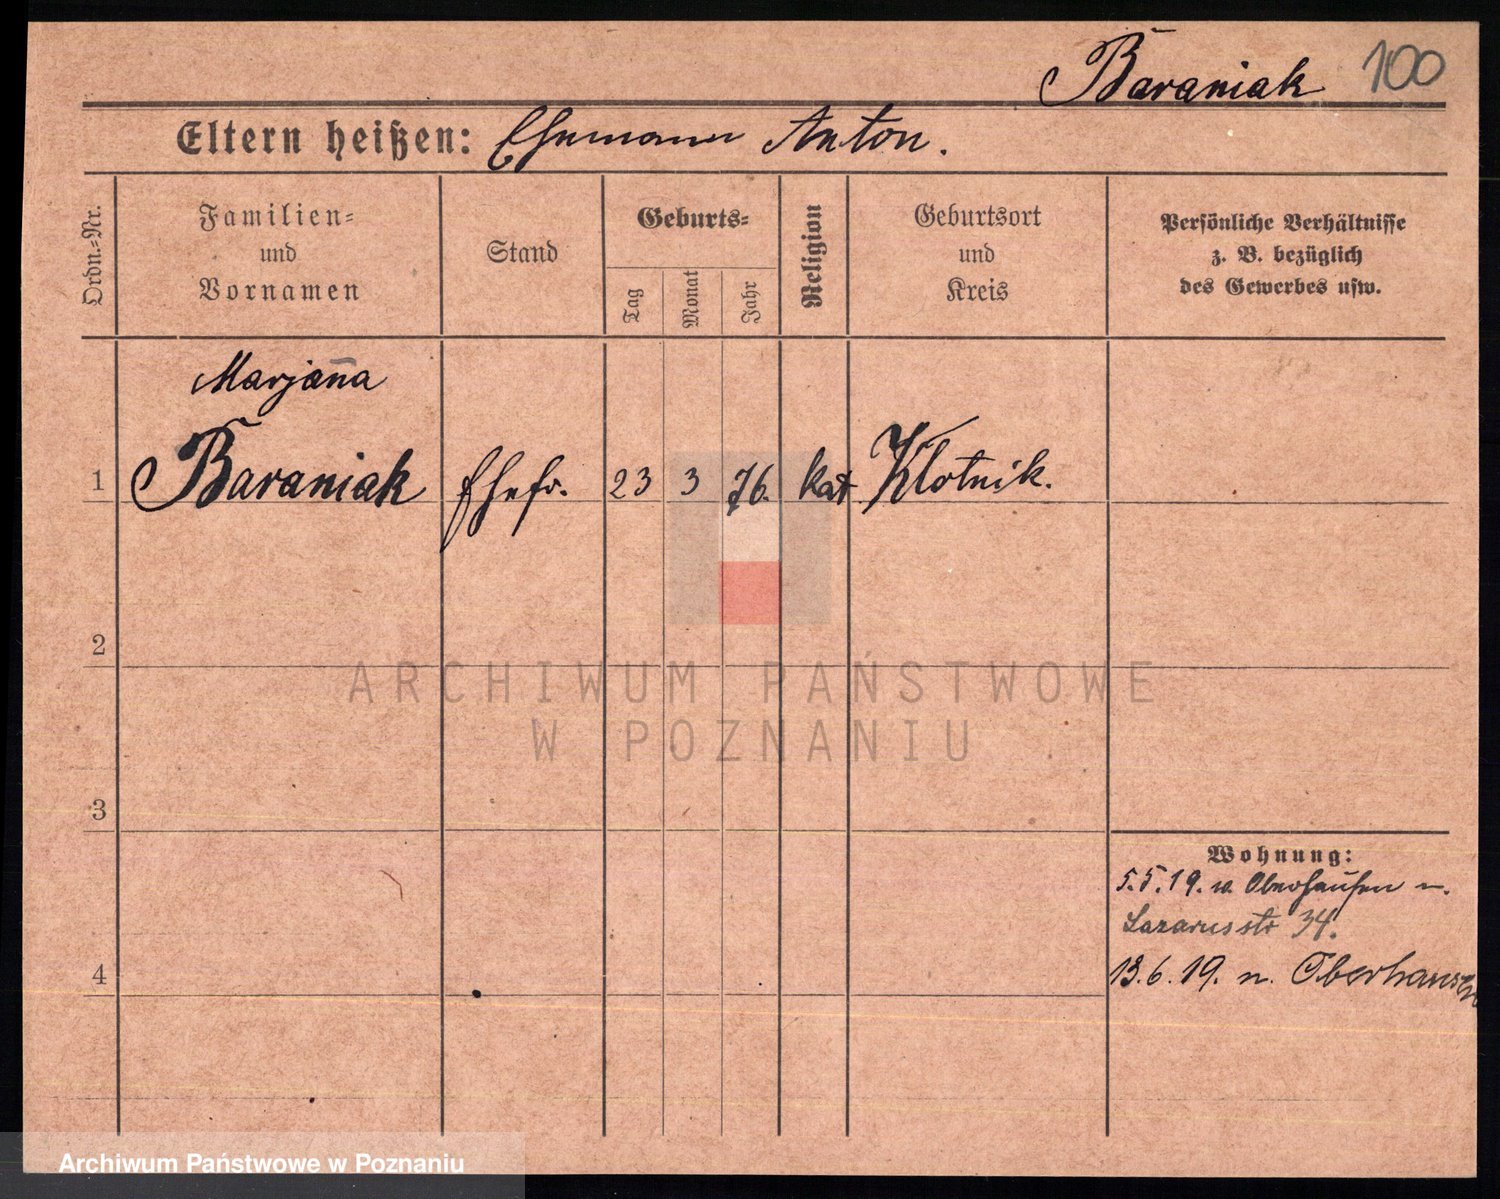 Baraniak 100
Eltern heißen: Ehemann Anton.
Ordn.=Nr.
Familien=
und
Vornamen
Stand
Geburts=
Tag
Monat
Jahr
Religion
Geburtsort
und
Kreis
Persönliche Verhältnisse
z. B. bezüglich
des Gewerbes usw.
Marjan̄a
1 Baraniak Ehefr. 23 3 76. kat Kłotnik.
2
ARCHIWUM PAŃSTWOWE
W POZNANIU
3
Wohnung:
5.5.19. v. Oberhausen n.
Lazarusstr 34.
4
13.6.19. n. Oberhausen
Archiwum Państwowe w Poznaniu